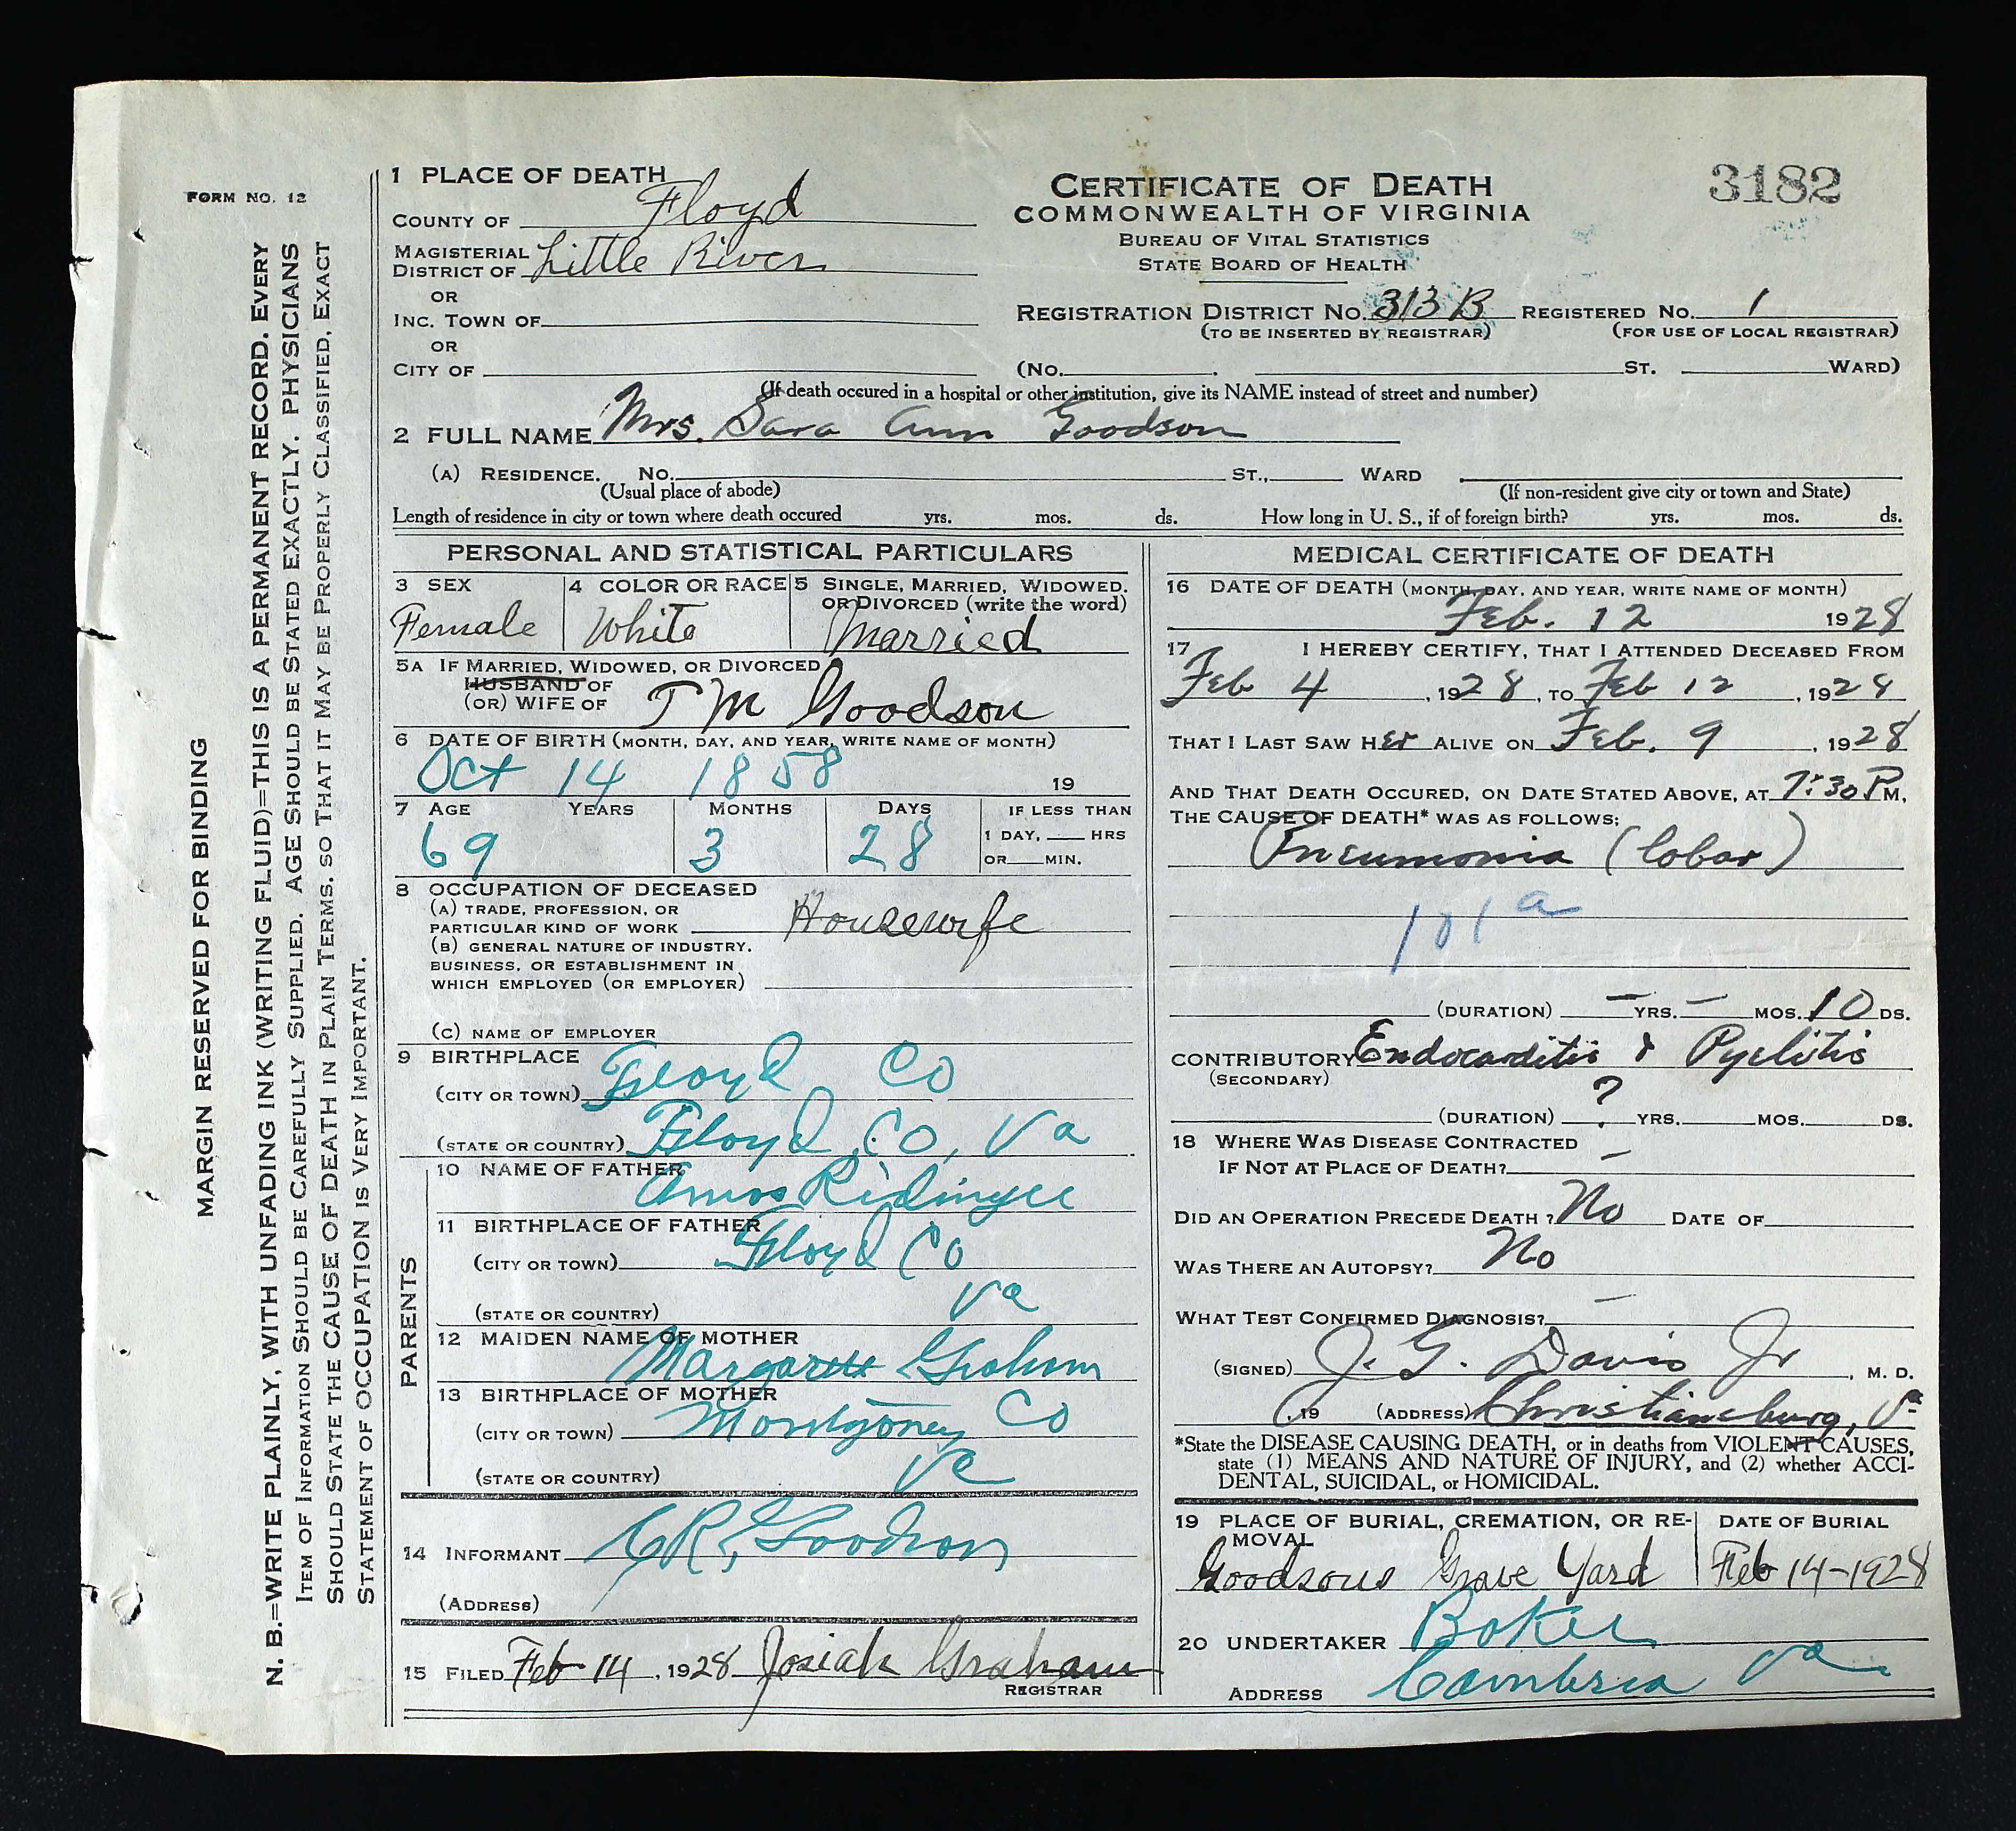 FORM NO. 12
MARGIN RESERVED FOR BINDING
N. B.=WRITE PLAINLY, WITH UNFADING INK (WRITING FLUID)=THIS IS A PERMANENT RECORD. EVERY
ITEM OF INFORMATION SHOULD BE CAREFULLY SUPPLIED. AGE SHOULD BE STATED EXACTLY. PHYSICIANS
SHOULD STATE THE CAUSE OF DEATH IN PLAIN TERMS. SO THAT IT MAY BE PROPERLY CLASSIFIED. EXACT
STATEMENT OF OCCUPATION IS VERY IMPORTANT.
1 PLACE OF DEATH
COUNTY OF Floyd
MAGISTERIAL
DISTRICT OF Little River
OR
INC. TOWN OF
OR
CITY OF
CERTIFICATE OF DEATH
COMMONWEALTH OF VIRGINIA
BUREAU OF VITAL STATISTICS
STATE BOARD OF HEALTH
3182
REGISTRATION DISTRICT NO. 313 B REGISTERED NO. 1
(TO BE INSERTED BY REGISTRAR) (FOR USE OF LOCAL REGISTRAR)
(NO. ST. WARD)
(If death occured in a hospital or other institution, give its NAME instead of street and number)
2 FULL NAME Mrs. Sara Ann Goodson
(A) RESIDENCE. NO. ST., WARD
(Usual place of abode) (If non-resident give city or town and State)
Length of residence in city or town where death occured yrs. mos. ds. How long in U. S., if of foreign birth? yrs. mos. ds.
PERSONAL AND STATISTICAL PARTICULARS
3 SEX 4 COLOR OR RACE 5 SINGLE, MARRIED, WIDOWED.
OR DIVORCED (write the word)
Female White Married
5A IF MARRIED, WIDOWED, OR DIVORCED
HUSBAND OF
(OR) WIFE OF T M Goodson
6 DATE OF BIRTH (MONTH, DAY, AND YEAR, WRITE NAME OF MONTH)
Oct 14 1858 19
7 AGE YEARS MONTHS DAYS IF LESS THAN
1 DAY, HRS
OR MIN.
69 3 28
8 OCCUPATION OF DECEASED
(A) TRADE, PROFESSION, OR
PARTICULAR KIND OF WORK Housewife
(B) GENERAL NATURE OF INDUSTRY.
BUSINESS, OR ESTABLISHMENT IN
WHICH EMPLOYED (OR EMPLOYER)
(C) NAME OF EMPLOYER
9 BIRTHPLACE
(CITY OR TOWN) Floyd Co
(STATE OR COUNTRY) Floyd Co, Va
PARENTS
10 NAME OF FATHER
Amos Ridinger
11 BIRTHPLACE OF FATHER
(CITY OR TOWN) Floyd Co
(STATE OR COUNTRY) Va
12 MAIDEN NAME OF MOTHER
Margarett Graham
13 BIRTHPLACE OF MOTHER
(CITY OR TOWN) Montgomey Co
(STATE OR COUNTRY) Va
14 INFORMANT Goodson
(ADDRESS)
15 FILED Feb 14, 1928 Josiah Graham
REGISTRAR
MEDICAL CERTIFICATE OF DEATH
16 DATE OF DEATH (MONTH, DAY, AND YEAR, WRITE NAME OF MONTH)
Feb. 12 1928
17 I HEREBY CERTIFY, THAT I ATTENDED DECEASED FROM
Feb 4, 1928, TO Feb 12, 1928
THAT I LAST SAW HER ALIVE ON Feb. 9, 1928
AND THAT DEATH OCCURED, ON DATE STATED ABOVE, AT 7:30 P M,
THE CAUSE OF DEATH* WAS AS FOLLOWS:
Pneumonia (lobar)
101 a
(DURATION) — YRS. — MOS. 10 DS.
CONTRIBUTORY Endocarditis & Pyelitis
(SECONDARY)
(DURATION) ? YRS. MOS. DS.
18 WHERE WAS DISEASE CONTRACTED
IF NOT AT PLACE OF DEATH? —
DID AN OPERATION PRECEDE DEATH? No DATE OF
WAS THERE AN AUTOPSY? No
WHAT TEST CONFIRMED DIAGNOSIS? —
(SIGNED) J. G. Davis Jr, M. D.
, 19 (ADDRESS) Christiansburg, Va
*State the DISEASE CAUSING DEATH, or in deaths from VIOLENT CAUSES,
state (1) MEANS AND NATURE OF INJURY, and (2) whether ACCI-
DENTAL, SUICIDAL, or HOMICIDAL.
19 PLACE OF BURIAL, CREMATION, OR RE- DATE OF BURIAL
MOVAL
Goodsons Grave Yard Feb 14-1928
20 UNDERTAKER
ADDRESS Cambria Va